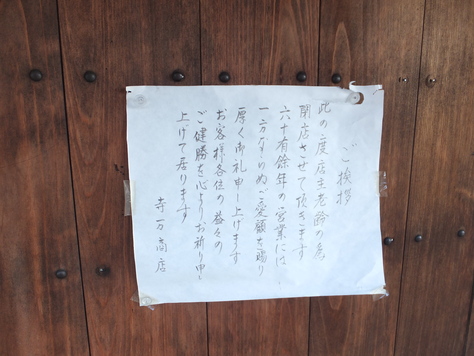 ご挨拶
此の度店主老齢の為
閉店させて頂きます
六十有余年の営業には
一方ならぬご愛顧を賜り
厚く御礼申し上げます
お客様各位の益々の
ご健勝を心よりお祈り申し
上げて居ります
寺万商店